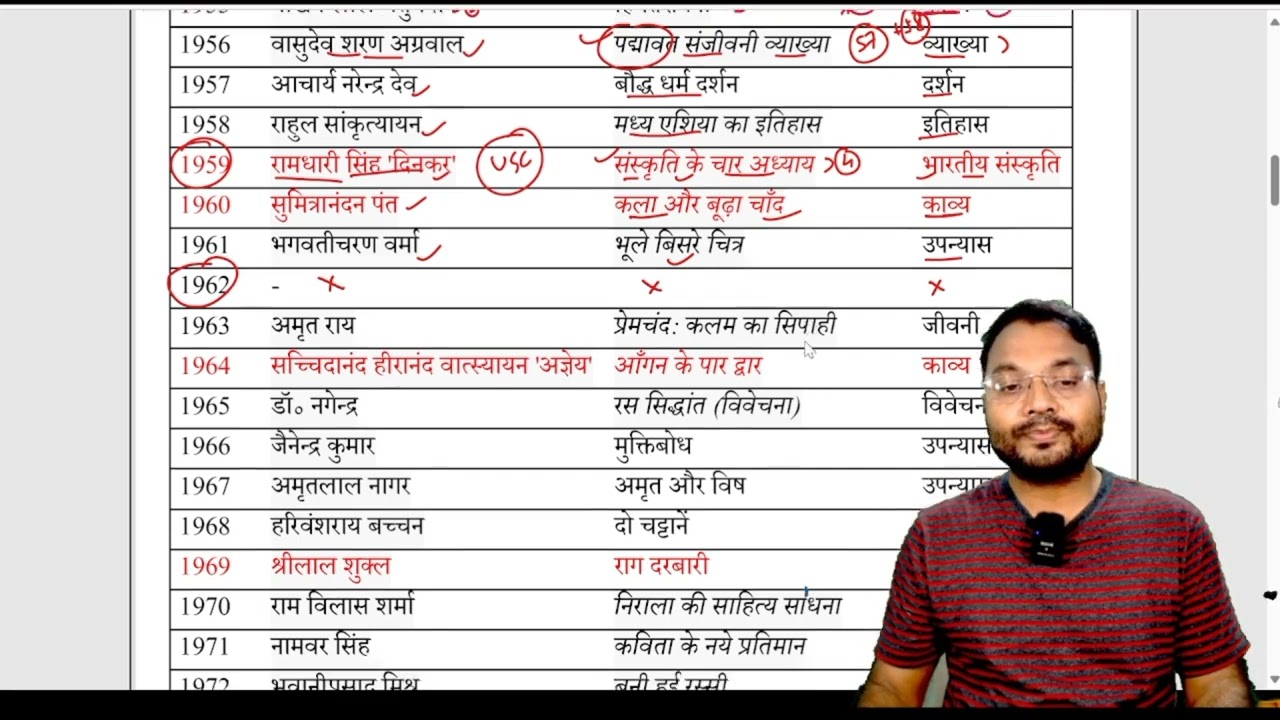 1956 वासुदेव शरण अग्रवाल पद्मावत संजीवनी व्याख्या व्याख्या
1957 आचार्य नरेन्द्र देव बौद्ध धर्म दर्शन दर्शन
1958 राहुल सांकृत्यायन मध्य एशिया का इतिहास इतिहास
1959 रामधारी सिंह 'दिनकर' संस्कृति के चार अध्याय भारतीय संस्कृति
1960 सुमित्रानंदन पंत कला और बूढ़ा चाँद काव्य
1961 भगवतीचरण वर्मा भूले बिसरे चित्र उपन्यास
1962 - × × ×
1963 अमृत राय प्रेमचंद: कलम का सिपाही जीवनी
1964 सच्चिदानंद हीरानंद वात्स्यायन 'अज्ञेय' आँगन के पार द्वार काव्य
1965 डॉ॰ नगेन्द्र रस सिद्धांत (विवेचना)
1966 जैनेन्द्र कुमार मुक्तिबोध उपन्यास
1967 अमृतलाल नागर अमृत और विष
1968 हरिवंशराय बच्चन दो चट्टानें
1969 श्रीलाल शुक्ल राग दरबारी
1970 राम विलास शर्मा निराला की साहित्य साधना
1971 नामवर सिंह कविता के नये प्रतिमान
1972 भवानीप्रसाद मिश्र बुनी हुई रस्सी